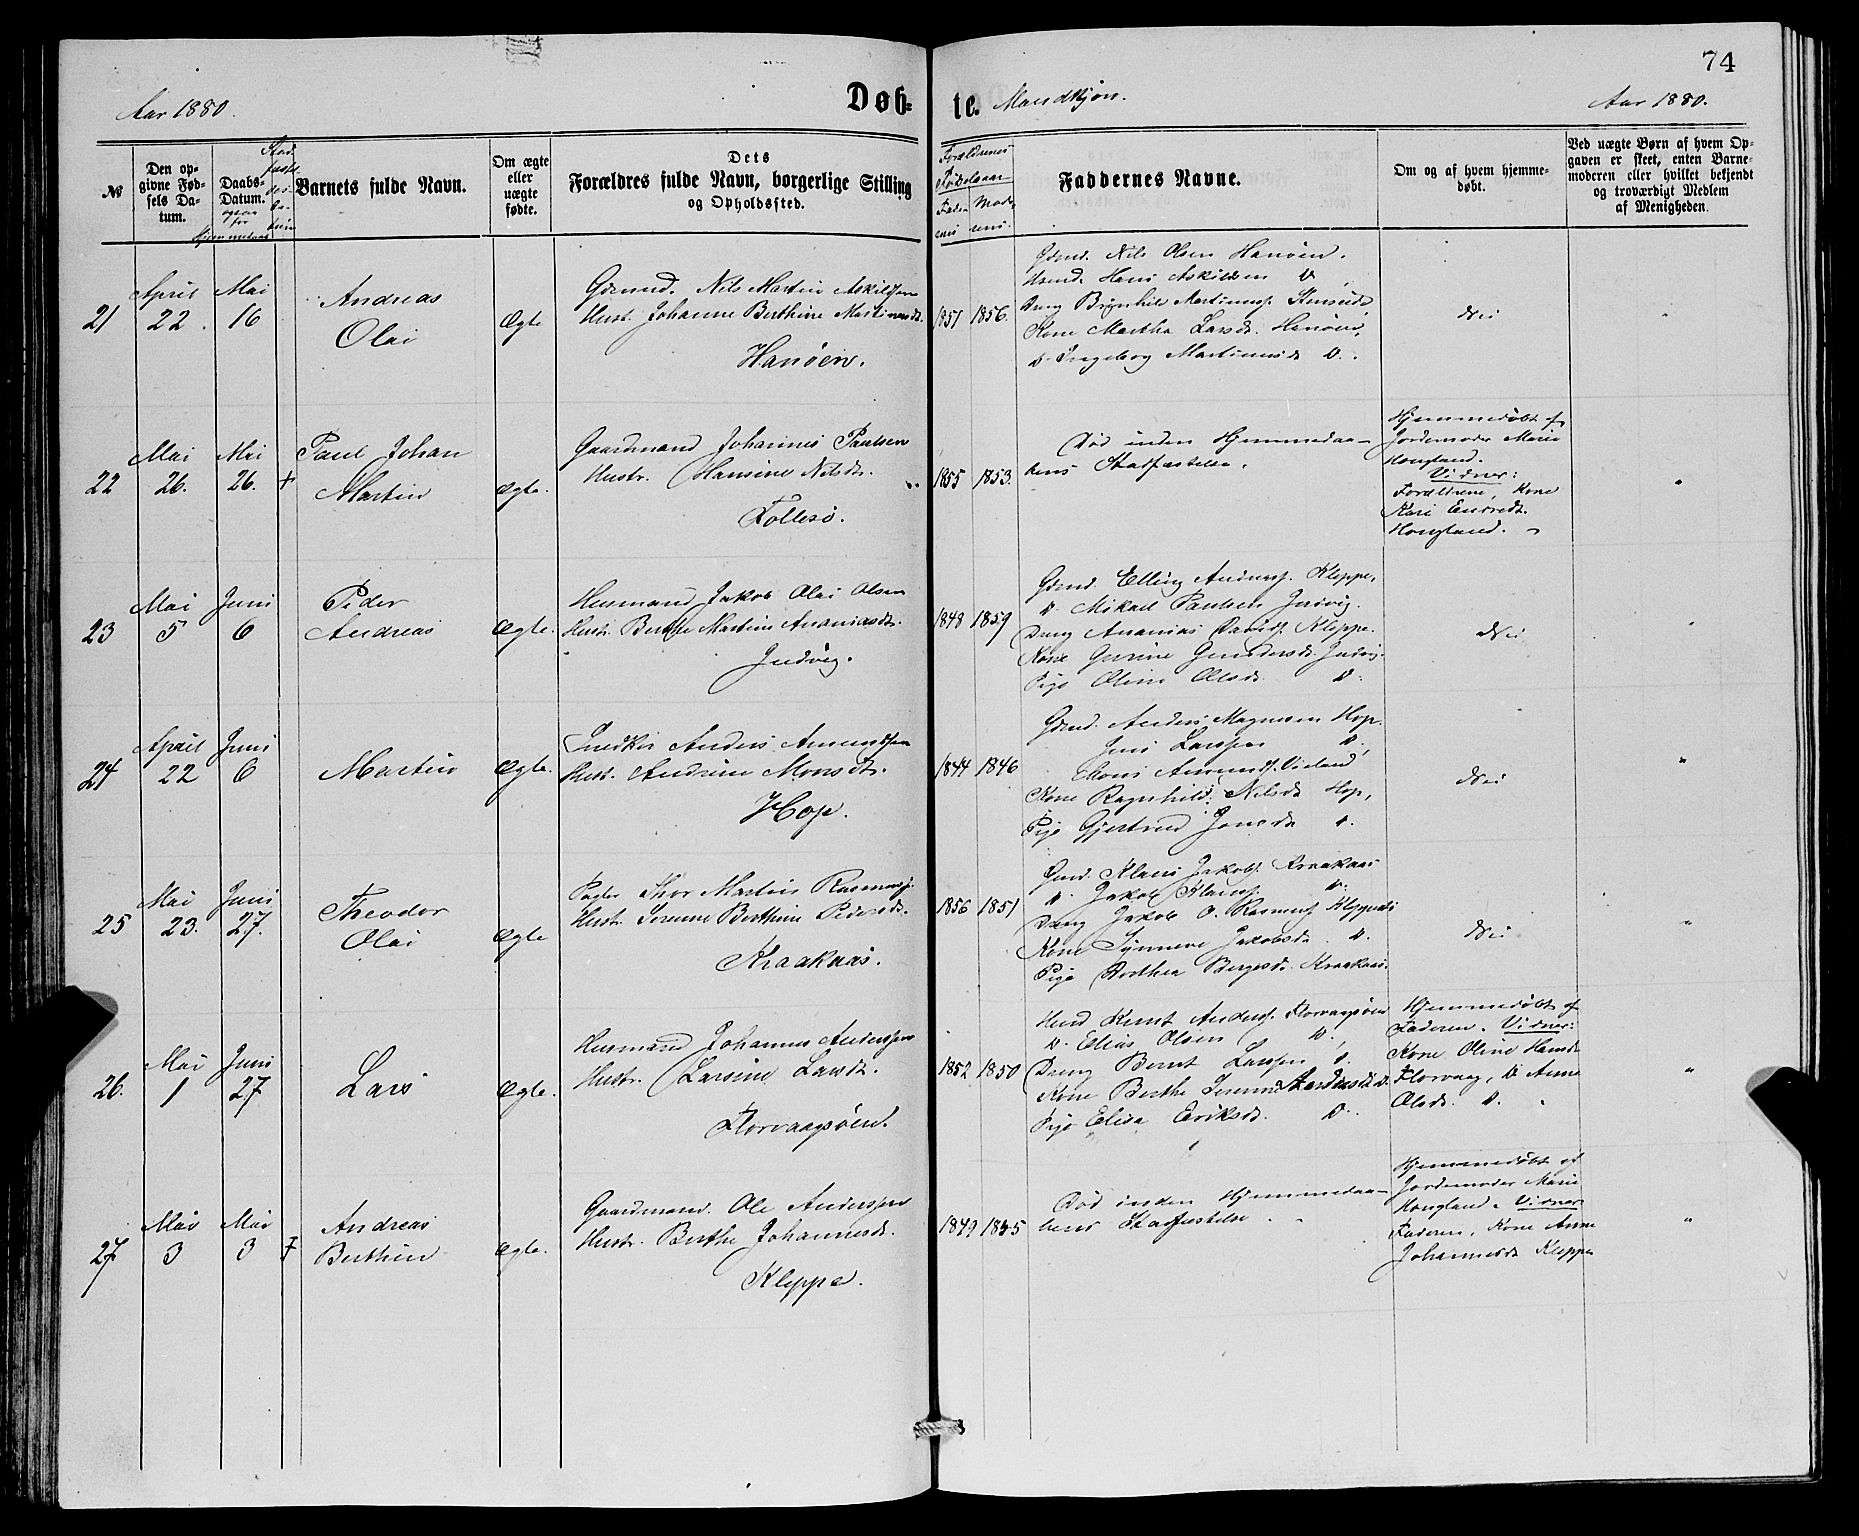 74
Aar 1880.
Døb-
te.
Mandkjøn.
Aar 1880.
№
Den op-
givne Fød-
sels Da-
tum.
Daabs-
Datum.
Barnets fulde Navn.
Om ægte
eller
uægte
fødte.
Dets
Forældres fulde Navn, borgerlige Stilling
og Opholdssted.
Forældrenes
Fødselsaar
Faderens Moderens
Faddernes Navne.
Om og af hvem hjemme-
døbt.
Ved uægte Børn af hvem Op-
gaven er skeet, enten Barne-
moderen eller hvilket bekjendt
og troværdigt Medlem
af Menigheden.
21
April
22.
Mai
16
Andreas
Olai
Ægte
Gdmnd. Nils Martin Askildsen
Hust. Johanne Berthine Martinusdt.
Hanøen.
1851 1856.
Gdmd. Nils Olsen Hanøen.
Hans Askildsen D
Dreng Brynhild Martinusf.
Kone Martha Larsdt. Hanøen,
D. Ingeborg Martinusdt D.
Nei
22
Mai
26.
Mai
26. +
Paul Johan
Martin
Ægte.
Gaardmand Johannes Paulsen
Hustr. Hansine Nilsdt.
Follesø.
1855 1853.
Død inden Hjemmedaa-
bens Stadfæstelse.
Hjemmedøbt af
Jordemoder Marie
Hougland.
Vidner:
Forældrene, Kone
Kari
Hougland.
23
Mai
5
Juni
6
Peder
Andreas
Ægte.
Husmand Jakob Olai Olsen
Hustr. Berthe Martine Ananiasdt.
Indvig.
1848 1859
Gdmd. Elling Andersf. Kleppe,
D. Mikael Paulsen Indvig.
Dreng Ananias Davidf. Kleppe.
Kone Gurine Gundersdt. Indvig.
Pige Oline Olsdt. D.
Nei
24
April
22
Juni
6
Martin
Ægte.
Anders Amundsen
Hust. Andrine Monsdt.
Hop.
1844 1846
Gdmd. Anders Magnesen Hop.
Jens Larssen D.
Mons Amundsf.
Kone Ragnhild Nilsdt Hop,
Pige Gjertrud Jonsdt D.
Nei
25
Mai
23.
Juni
27.
Theodor
Olai
Ægte
Thor Martin Rasmusf.
Hustr. Serenne Berthine Pedersdt.
Kraakaas.
1856 1851
Gmd. Klaus Jakobf. Kraakaas
D. Jakob Klausf. D.
Dreng Jakob O. Rasmusf Kleppe
Kone Synneve Jakobsdt. D.
Pige Dorthea Børgesdt. Kraakaas.
Nei
26.
Mai
1
Juni
27
Lars
Ægte.
Husmand Johannes Anderssen
Hustr. Larsine Larsdt.
Florvaagsøen.
1852 1850
Husmd Knut Andersf. Florvaagsøen
D. Elias Olsen D.
Dreng Bernt Larssen D.
Kone Berthe Serenne D.
Pige Elisa Eriksdt. D.
Hjemmedøbt af
Faderen. Vidner:
Kone Oline Hansdt
Florvaag, D Anne
Olsdt. D.
27
Mai
3
Mai
3 +
Andreas
Berthin
Ægte.
Gaardmand. Ole Anderssen
Hustr. Berthe Johannesdt.
Kleppe.
1849 1845
Død inden Hjemmedaa-
bens Stadfæstelse.
Hjemmedøbt af
Jordemoder Marie
Hougland. Vidner
Faderen, Kone Anne
Johannesdt Kleppe